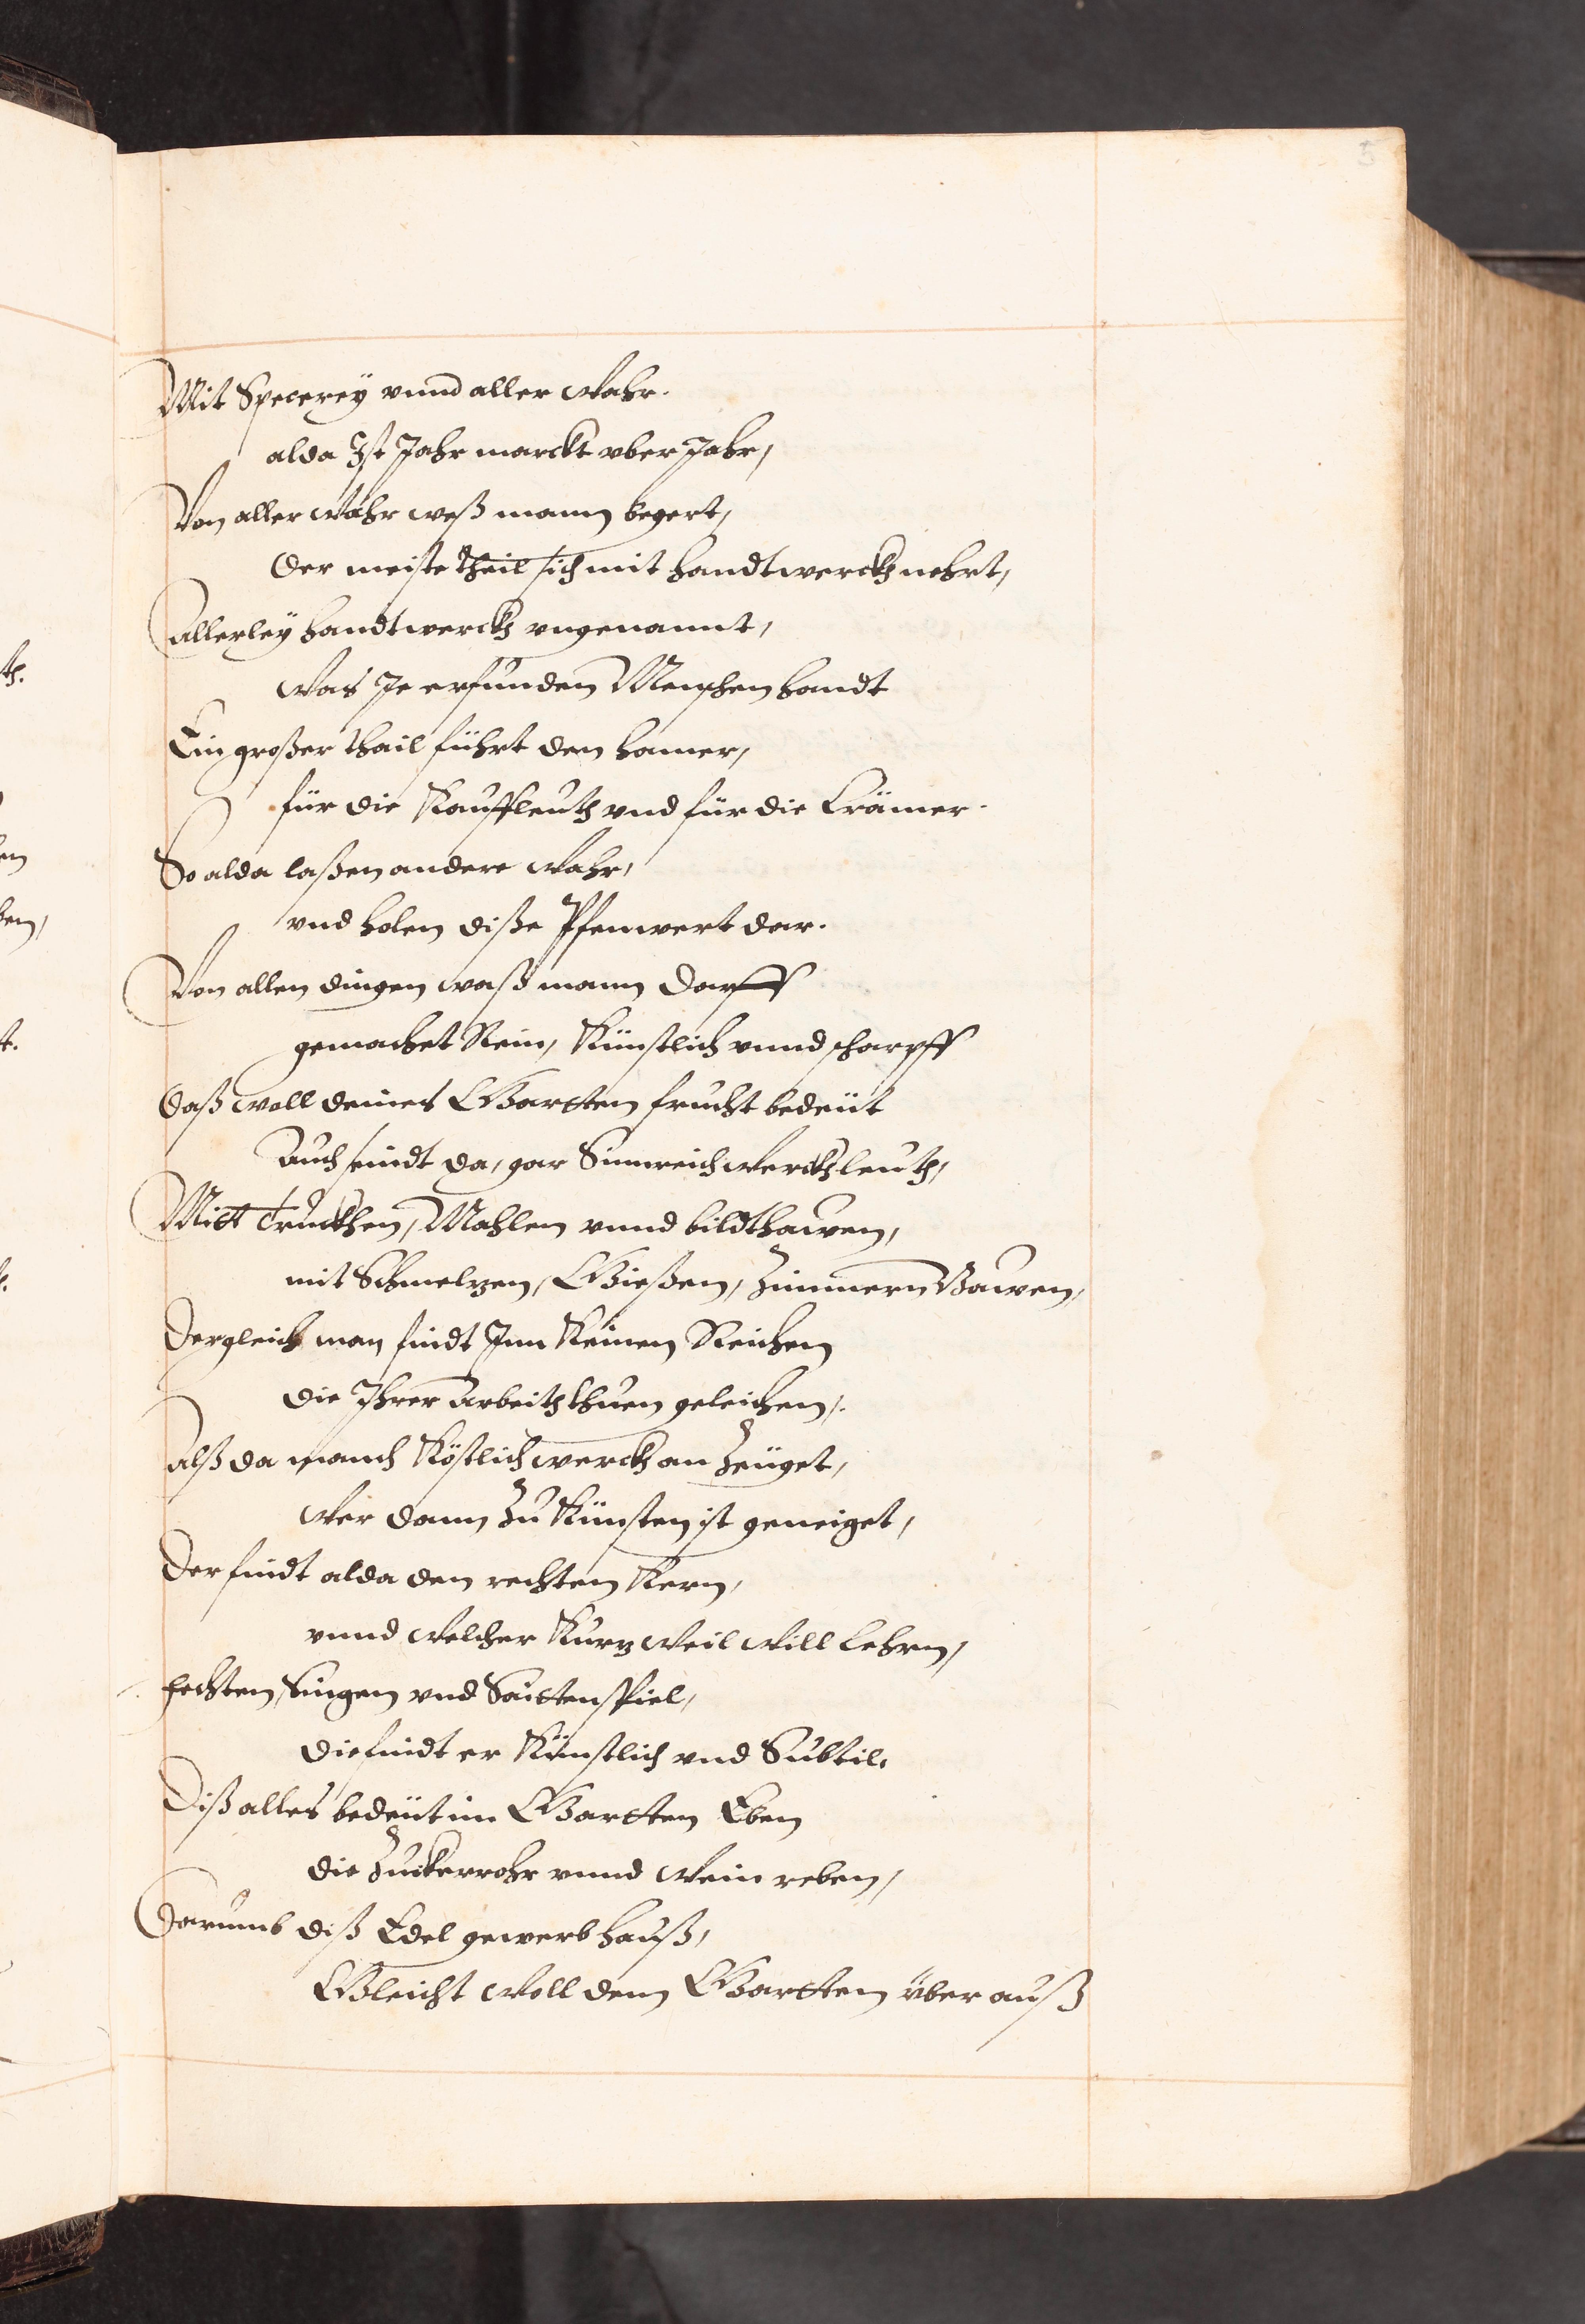 5
Mit Specereÿ vnnd aller Wahr.
alda Ist Jahr marckt vber Jahr,
Von aller Wahr weß mann begert,
Der meiste theil sich mit handtwerckh nehrt,
Allerleÿ handtwerckh vngenannt,
Was Je erfunden Menschen handt
Ein großer thail führt den hamer,
für die Kauffleuth vnd für die Crämer.
So alda laßen andere Wahr,
vnd holen diße Pfenwert dar.
Von allen dingen waß mann darff
gemachet Rein, Künstlich vnnd scharpff
Daß woll deines Gartten frucht bedeüt
Auch seindt da, gar Sinnreich Werckhleuth,
Mitt Truckhen, Mahlen vnnd bildthawen,
mit Schmelzen, Gießen, Zimmern Bawen,
Dergleich man findt Inn Keinen Reichen
die Ihrer Arbeith thuen geleichen,.
Alß da manch Köstlich werckh an Zeüget,
Wer dann Zu Künsten ist geneiget,
Der findt alda den rechten Kern,
vnnd Welcher Kurz Weil Will Lehrn,
fechten, Singen vnd Saittenspiel,
die findt er Künstlich vnd Subtil.
Diß alles bedeüt im Gartten Eben
die Zuckerrohr vnnd Wein reben,
Darumb diß Edel gewerb hauß,
Gleicht Woll dem Gartten über auß